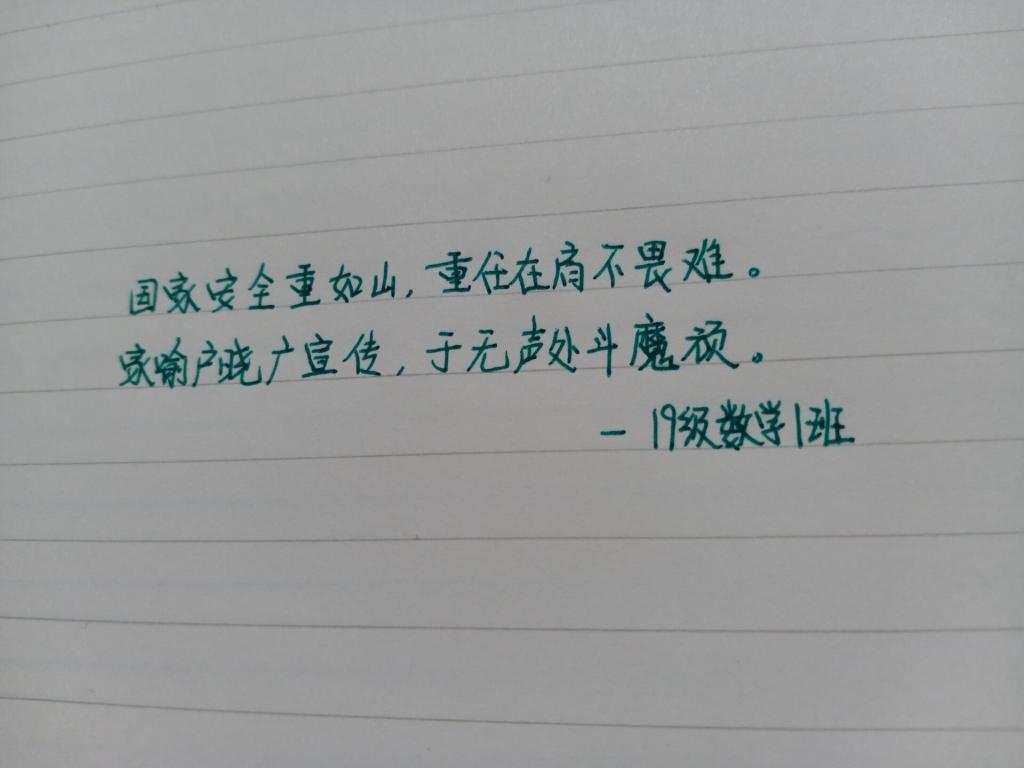 国家安全重如山，重任在肩不畏难。
家喻户晓广宣传，于无声处斗魔顽。
— 19级数学1班